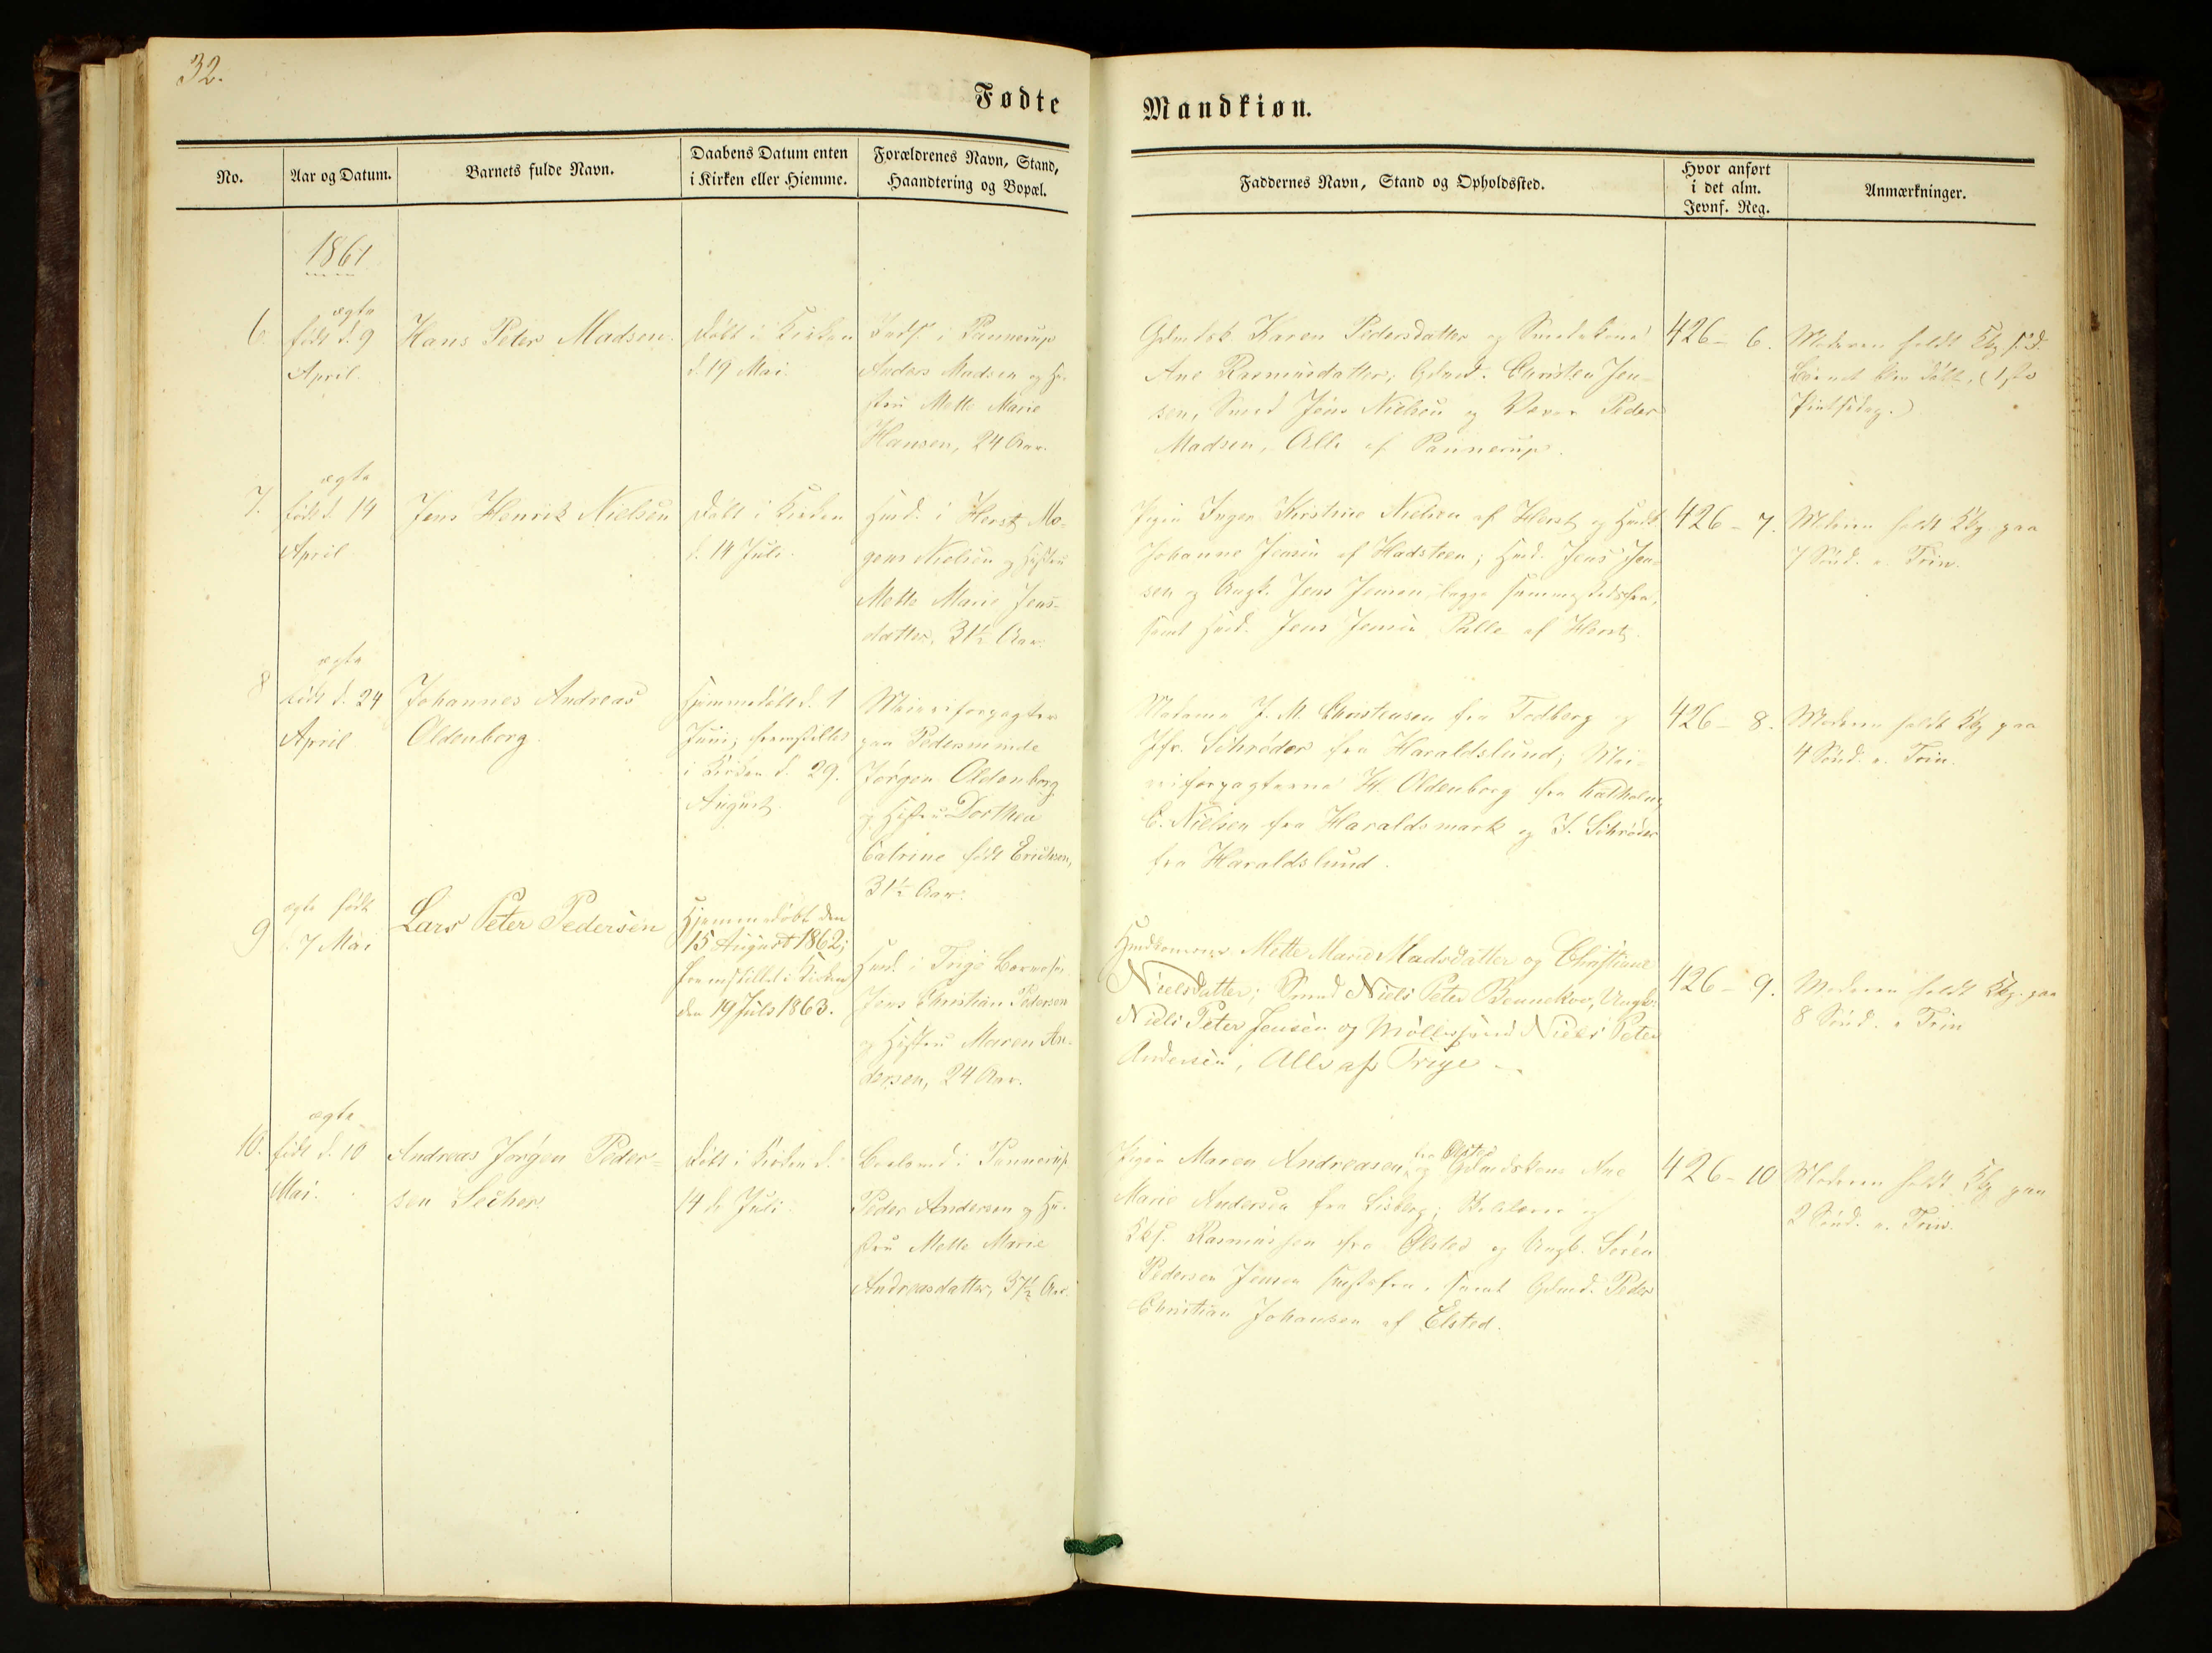 32.
Fødte
Mandkiøn.
No.
Aar og Datum.
Barnets fulde Navn.
Daabens Datum enten
i Kirken eller Hiemme.
Forældrenes Navn, Stand,
Haandtering og Bopæl.
Faddernes Navn, Stand og Opholdssted.
Hvor anført
i det alm.
Jevnf. Reg.
Anmærkninger.
1861
6.
ægte
født d. 9
April.
Hans Peter Madsen.
Døbt i Kirken
d. 19 Mai.
Inds. i Pannerup
Anders Madsen og Hu-
stru Mette Marie
Hansen, 24 Aar.
Gdmdsk. Karen Pedersdatter og Smedekone
Ane Rasmusdatter; Gdmd. Christen Jen-
sen, Smed Jens Nielsen og Væver Peder
Madsen, Alle af Pannerup.
426 - 6.
Moderen holdt Kbg. s. D.
Barnet blev døbt, (1ste
Pintsedag.)
7.
ægte
født d. 14
April
Jens Henrik Nielsen
Døbt i Kirken
d. 14 Juli.
Hmd. i Herst Mo-
gens Nielsen og Hustru
Mette Marie Jens-
datter, 31½ Aar.
Pigen Inger Kirstine Nielsen af Herst og Hmdk.
Johanne Jensen af Hadsten; Hmd. Jens Jen-
sen og Ungk. Jens Jensen, begge sammestedsfra,
samt Hmd. Jens Jensen Palle af Herst.
426 - 7.
Moderen holdt Kbg. paa
7 Sønd. e. Trin.
8
ægte
født d. 24
April
Johannes Andreas
Oldenborg.
Hjemmedøbt d. 1
Juni; fremstillet
i Kirken d. 29.
August.
Meieriforpagter
paa Pedersminde
Jørgen Oldenborg
og Hustru Dorthea
Catrine født Erichsen,
31½ Aar.
Madame J. M. Christensen fra Todbøg og
Jfr. Schrøder fra Haraldslund; Mei-
eriforpagterne H. Oldenborg fra Katholm,
C. Nielsen fra Haraldsmark og J. Schrøder
fra Haraldslund.
426 - 8.
Moderen holdt Kbg. paa
4 Sønd. e. Trin.
9
ægte født
d. 7 Mai
Lars Peter Pedersen
Hjemmedøbt den
15 August 1862;
fremstillet i Kirken
den 19 Juli 1863.
Hmd. i Trige
Jens Christian Pedersen
og Hustru Maren An-
dersen, 24 Aar.
Hmdkonerne Mette Marie Madsdatter og Christiane
Nielsdatter; Smed Niels Peter Bennekov, Ungk.
Niels Peter Jensen og Møllersvend Niels Peter
Andersen, Alle af Trige
426 - 9.
Moderen holdt Kbg. paa
8 Sønd. e. Trin
10.
ægte
født d. 10
Mai.
Andreas Jørgen Peder-
sen Secher.
Døbt i Kirken d.
14 de Juli.
Boelsmd. i Pannerup
Peder Andersen og Hu-
stru Mette Marie
Andreasdatter, 37½ Aar.
Pigen Maren Andreasen fra Ølsted og Gdmdskone Ane
Marie Andersen fra Lisberg; Skolelærer og
Kks. Rasmussen fra Ølsted og Ungk. Søren
Pedersen Jensen smstsfra, samt Gdmd. Peder
Christian Johansen af Elsted.
426 - 10
Moderen holdt Kbg. paa
2 Sønd. e. Trin.